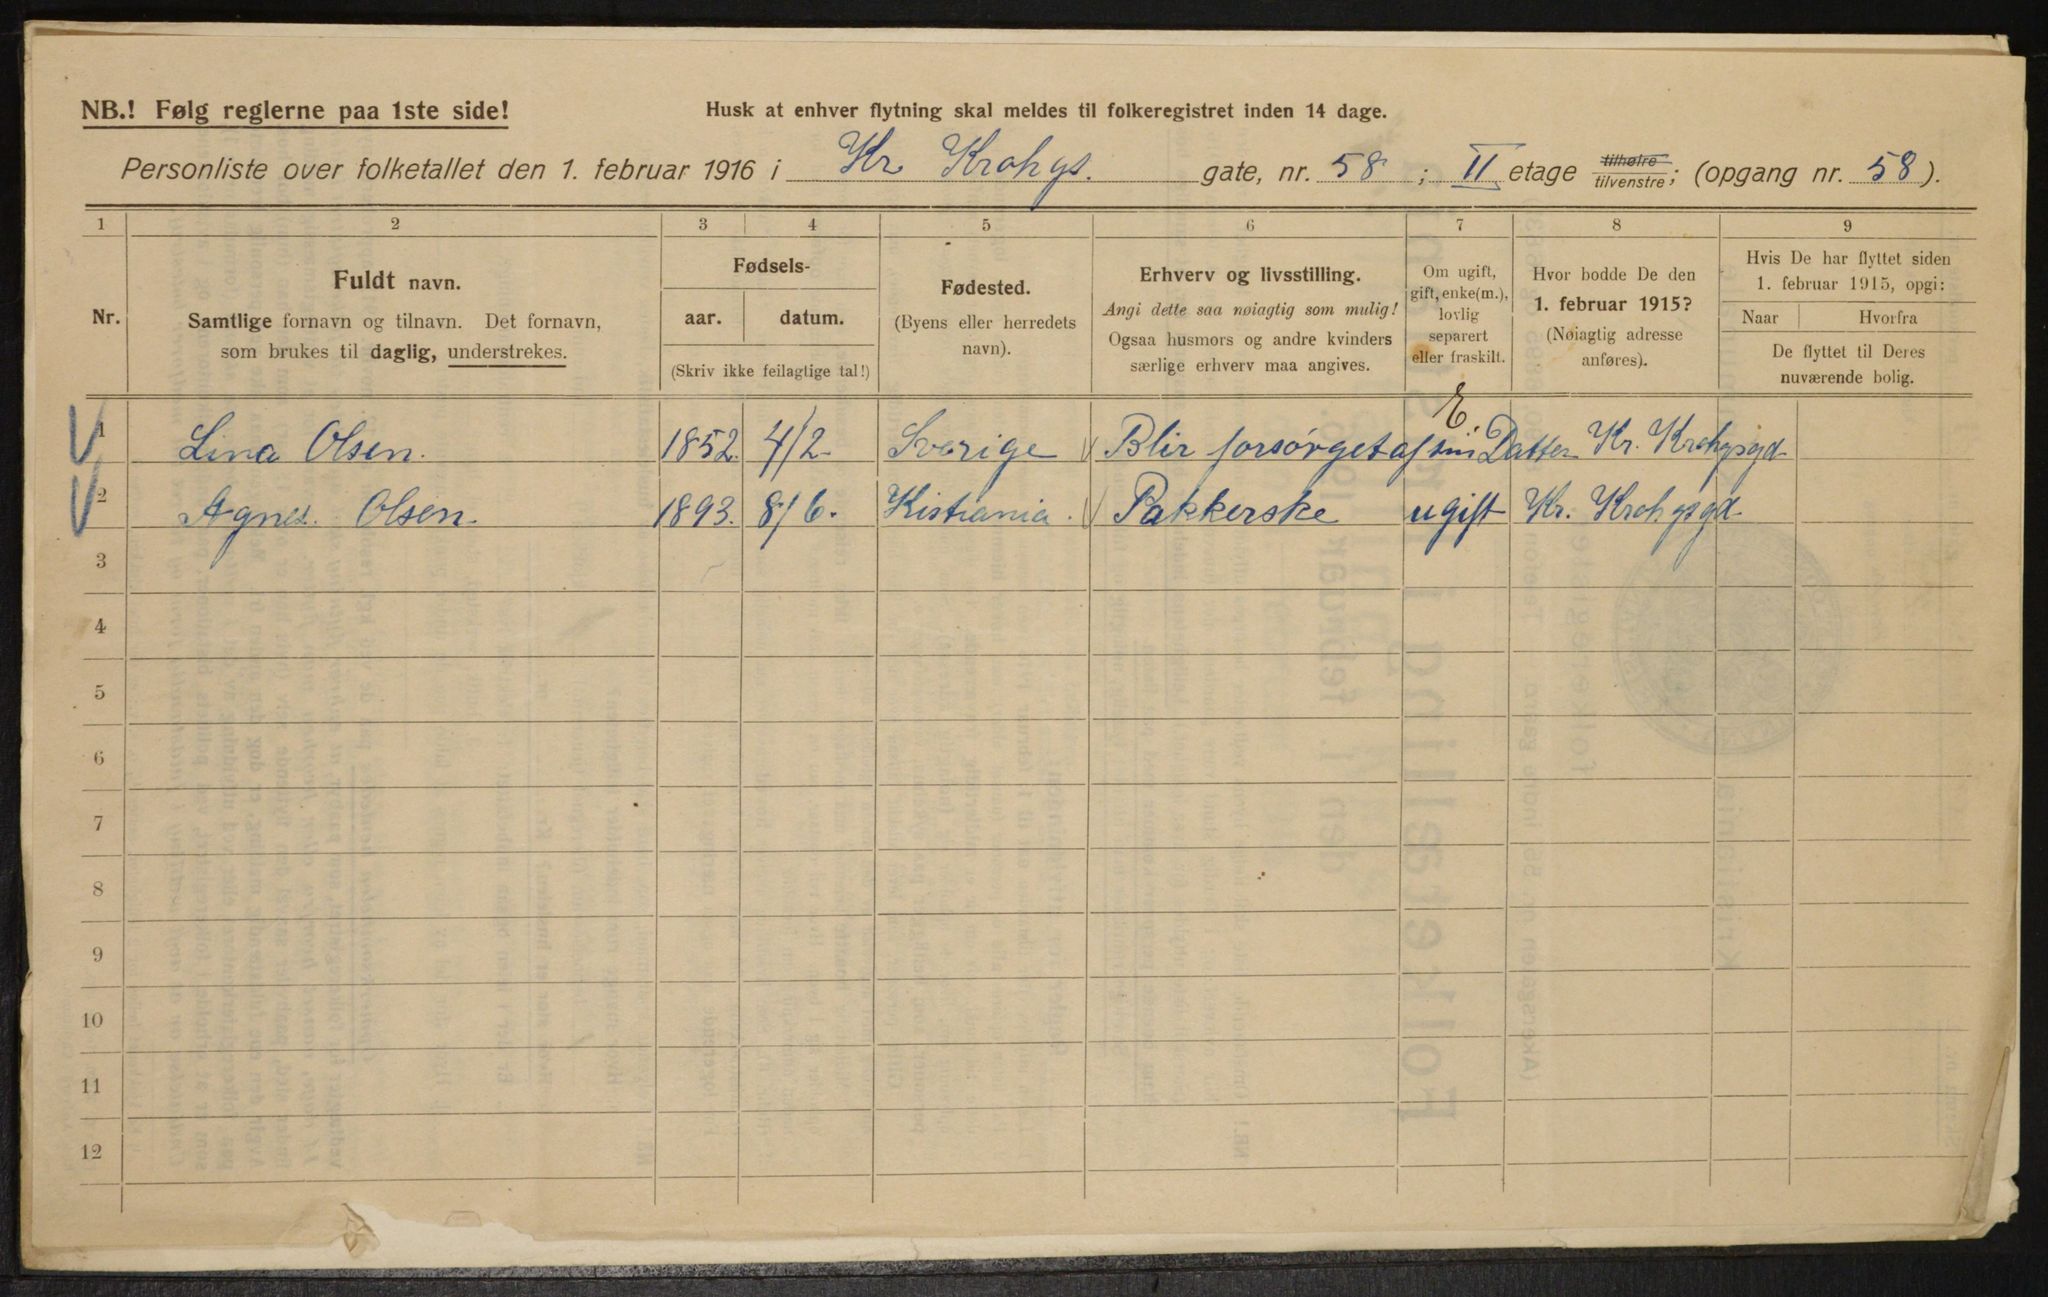 NB.! Følg reglerne paa 1ste side!
Husk at enhver flytning skal meldes til folkeregistret inden 14 dage.
Personliste over folketallet den 1. februar 1916 i Kr Krohgs. gate, nr. 58 ; II etage tilhøire/tilvenstre; (opgang nr. 58).
1 2 3 4 5 6 7 8 9
Nr.
Fuldt navn.
Samtlige fornavn og tilnavn. Det fornavn,
som brukes til daglig, understrekes.
Fødsels-
aar. datum.
(Skriv ikke feilagtige tal!)
Fødested.
(Byens eller herredets
navn).
Erhverv og livsstilling.
Angi dette saa nøiagtig som mulig!
Ogsaa husmors og andre kvinders
særlige erhverv maa angives.
Om ugift,
gift, enke(m.),
lovlig
separert
eller fraskilt.
Hvor bodde De den
1. februar 1915?
(Nøiagtig adresse
anføres).
Hvis De har flyttet siden
1. februar 1915, opgi:
Naar Hvorfra
De flyttet til Deres
nuværende bolig.
E.
1 Lina Olsen. 1852. 4/2. Sverige Blir forsørget af sin Datter Kr. Krohgsgd
2 Agnes. Olsen. 1893. 8/6. Kistiania. Pakkerske ugift Kr. Krohgsgd
3
4
5
6
7
8
9
10
11
12